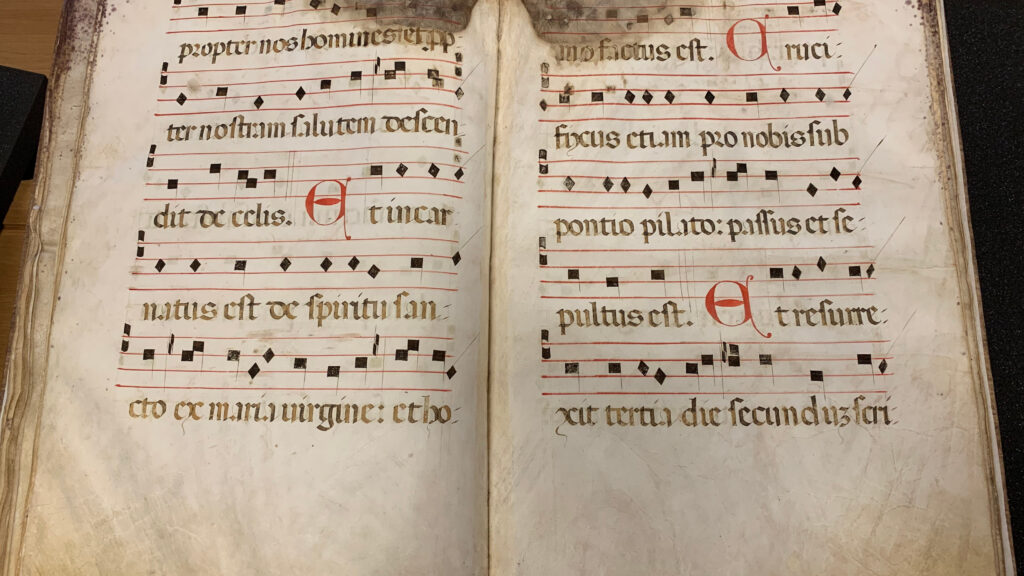 propter nos homines et pp
ter nostram salutem descen
dit de celis. Et incar
natus est de spiritu san-
cto ex maria uirgine: et ho-
mo factus est. Cruci-
fixus etiam pro nobis sub
pontio pilato: passus et se-
pultus est. Et resurre-
xit tertia die secunduz scri-